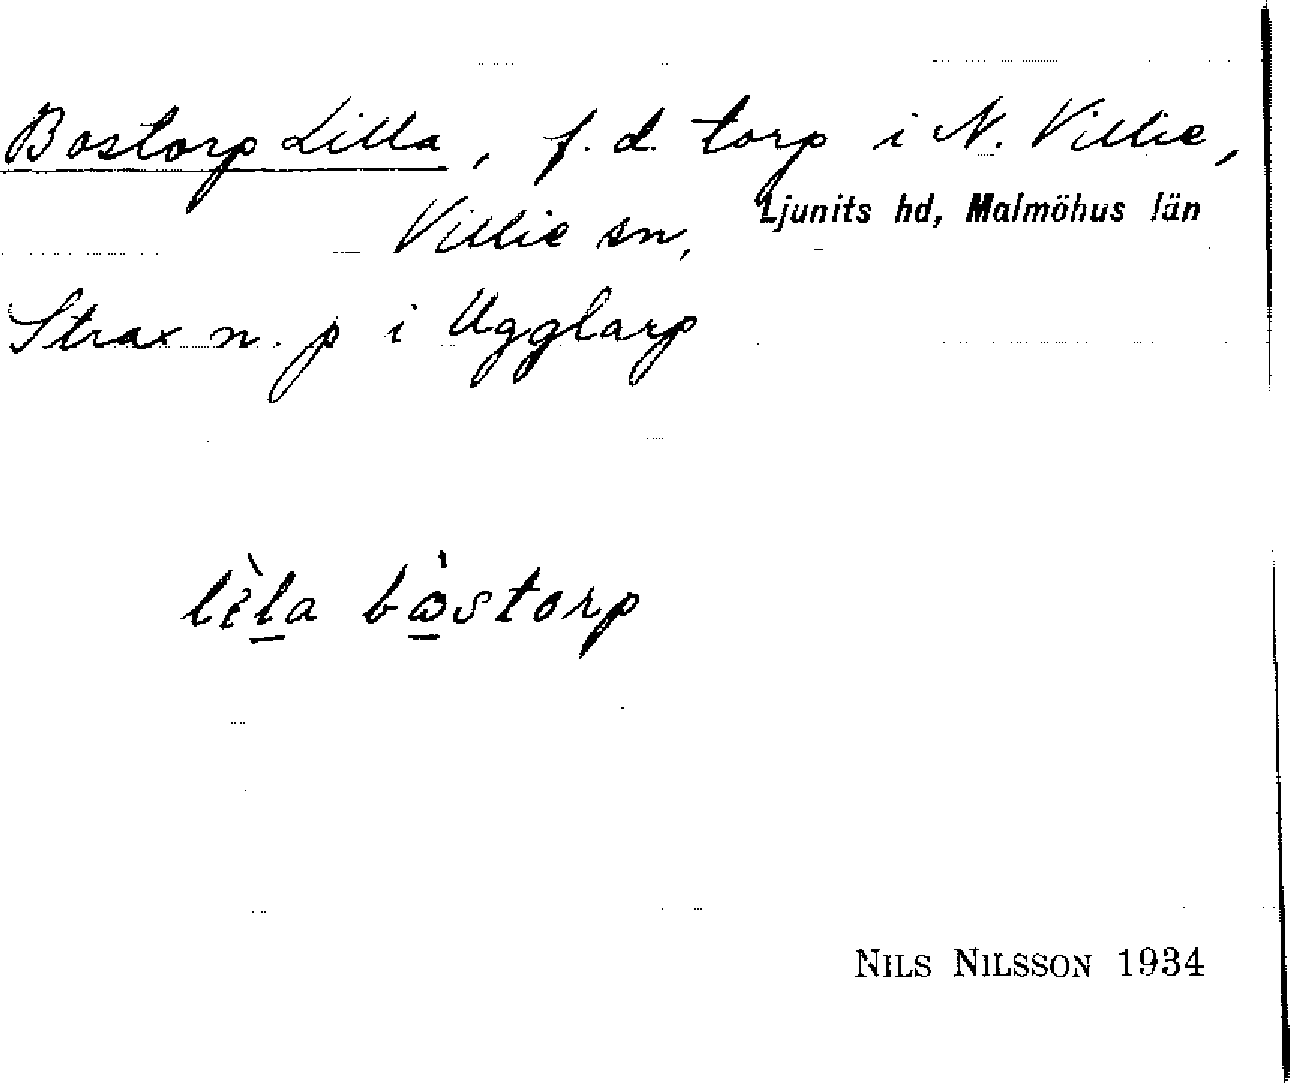 Bostorp Lilla, f.d. torp i N. Villie,
Villie sn, Ljunits hd, Malmöhus län
Strax n. p i Ugglarp
lèla bòstorp
NILS NILSSON 1934